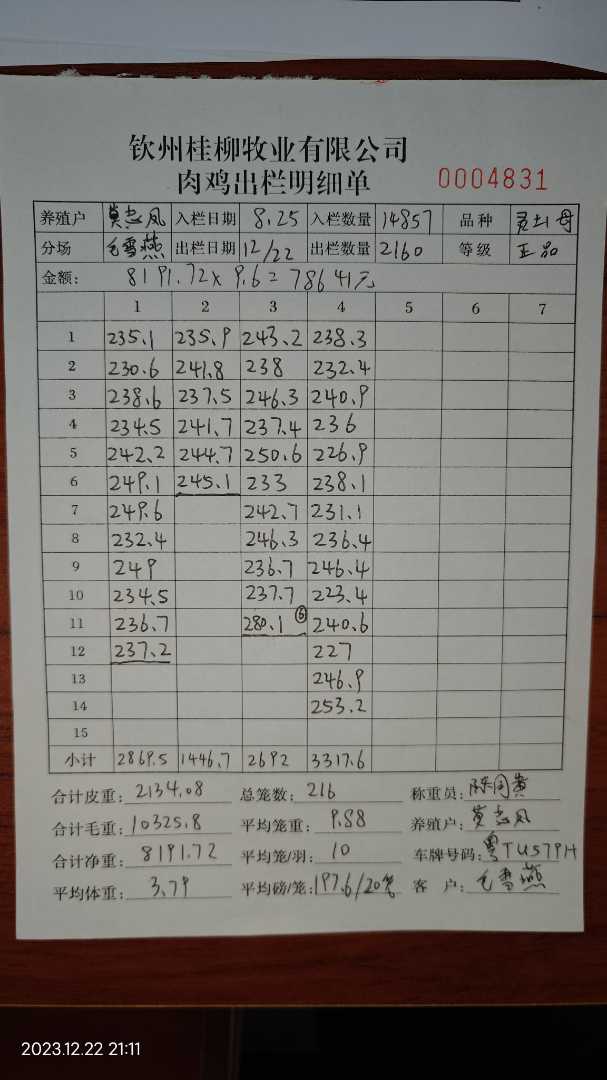 钦州桂柳牧业有限公司
肉鸡出栏明细单 0004831
养殖户 莫忠凤 入栏日期 8.25 入栏数量 14857 品种 灵山母
分场 毛雪燕 出栏日期 12/22 出栏数量 2160 等级 正品
金额: 8191.72×9.6=78641元
1 2 3 4 5 6 7
1 235.1 235.9 243.2 238.3
2 230.6 241.8 238 232.4
3 238.6 237.5 246.3 240.9
4 234.5 241.7 237.4 236
5 242.2 244.7 250.6 226.9
6 249.1 245.1 233 238.1
7 249.6 242.7 231.1
8 232.4 246.3 236.4
9 249 236.7 246.4
10 234.5 237.7 223.4
11 236.7 280.1 ⑥ 240.6
12 237.2 227
13 246.9
14 253.2
15
小计 2869.5 1446.7 2692 3317.6
合计皮重: 2134.08 总笼数: 216 称重员: 陈同黄
合计毛重: 10325.8 平均笼重: 9.88 养殖户: 莫忠凤
合计净重: 8191.72 平均笼/羽: 10 车牌号码: 粤TU579H
平均体重: 3.79 平均磅/笼: 197.6/20笼 客 户: 毛雪燕
2023.12.22 21:11